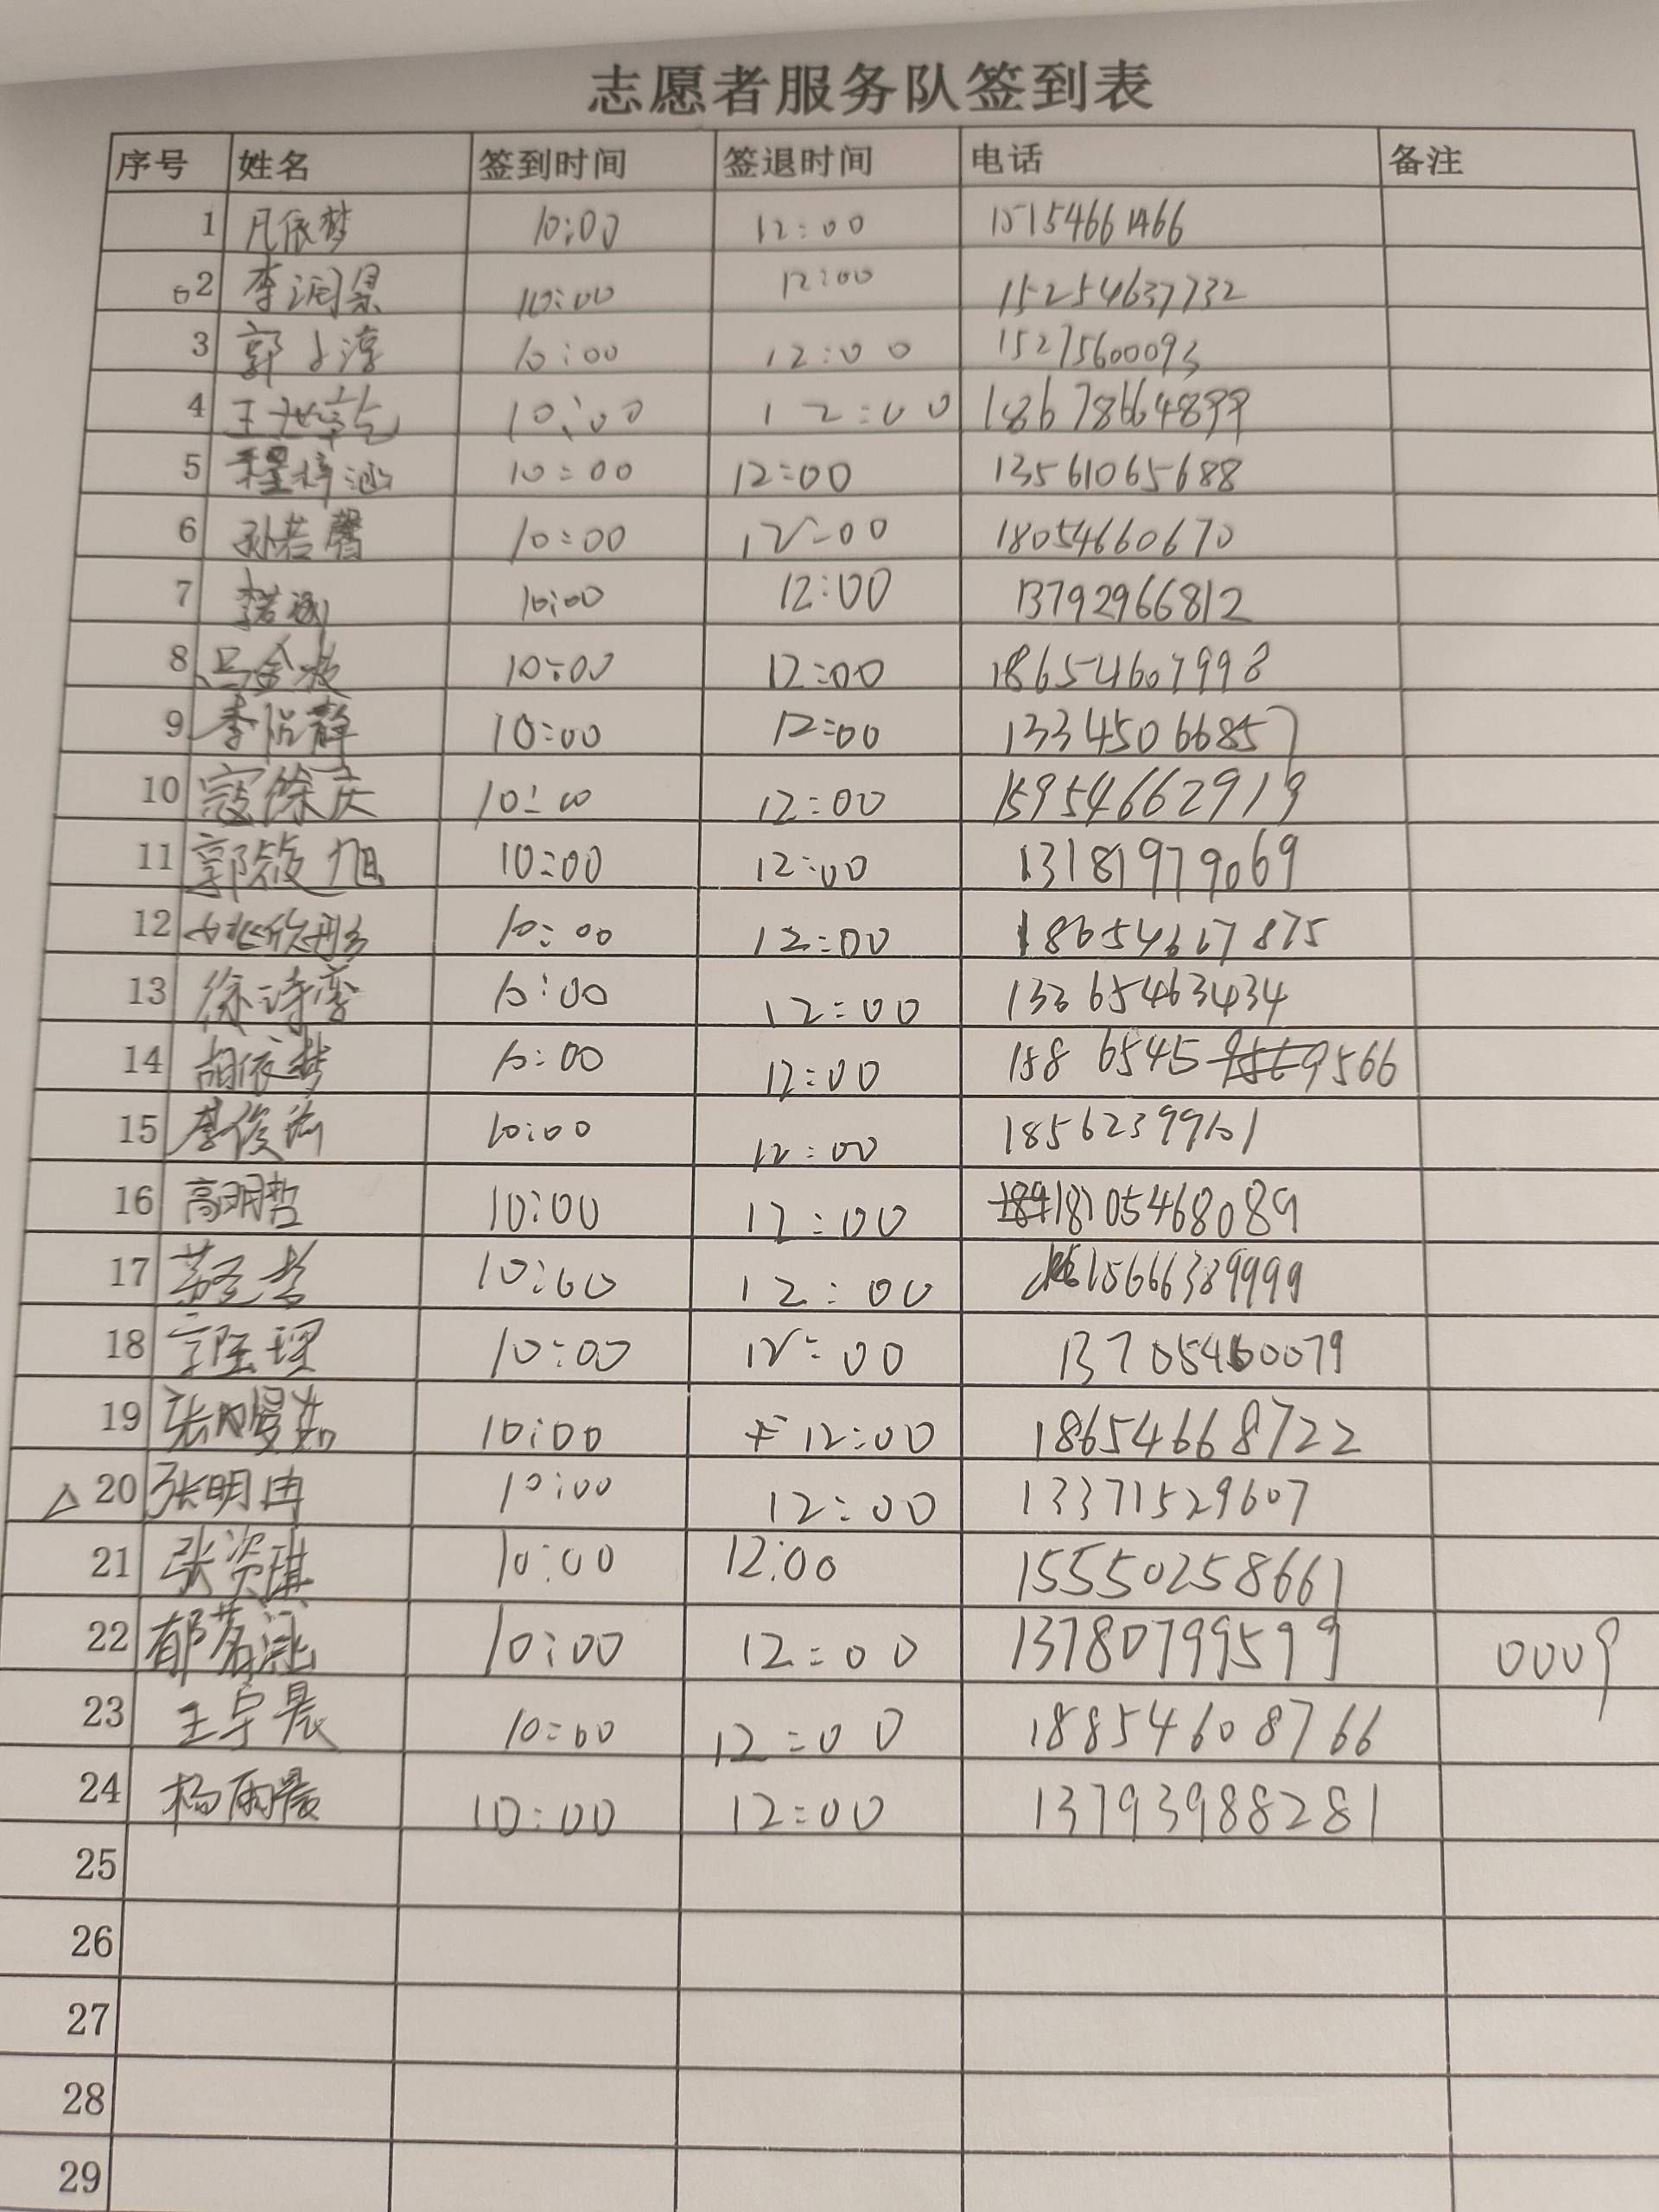 志愿者服务队签到表
序号 姓名 签到时间 签退时间 电话 备注
1 凡依梦 10:00 12:00 15154661466
2 李润泉 10:00 12:00 15254637732
3 郭子淳 10:00 12:00 15275600093
4 王世乾 10:00 12:00 18678664899
5 程梓涵 10:00 12:00 13561065688
6 孙若馨 10:00 12:00 18054660670
7 10:00 12:00 13792966812
8 马金 10:00 12:00 18654607998
9 李怡静 10:00 12:00 13345066857
10 寇徐庆 10:00 12:00 15954662919
11 郭筱旭 10:00 12:00 13181979069
12 姚欣彤 10:00 12:00 18654667875
13 徐诗蕾 10:00 12:00 13365463434
14 胡依梦 10:00 12:00 158 6545 9566
15 李俊 10:00 12:00 18562399101
16 高明哲 10:00 12:00 18105468089
17 10:00 12:00 15666389999
18 10:00 12:00 13705460079
19 张曼茹 10:00 12:00 18654668722
20 张明冉 10:00 12:00 13371529607
21 张资琪 10:00 12:00 15550258661
22 郁茗涵 10:00 12:00 13780799599 0009
23 王宇晨 10:00 12:00 18854608766
24 杨雨晨 10:00 12:00 13793988281
25
26
27
28
29